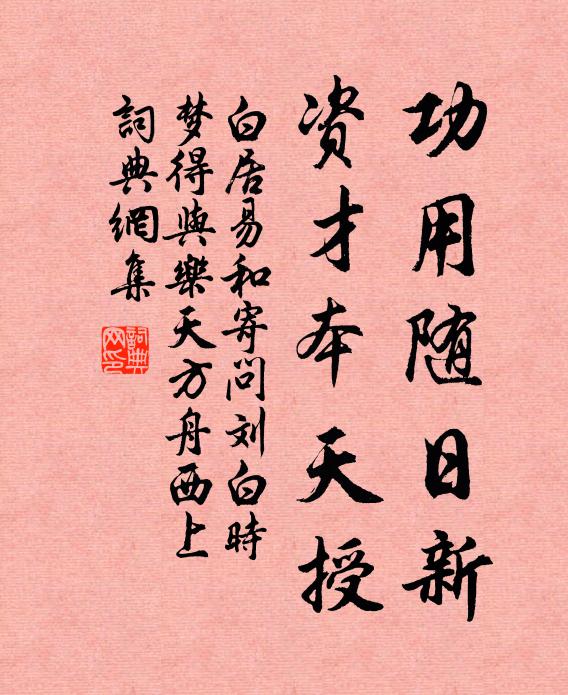 功用随日新
资才本天授
白居易和寄问刘白時
梦得與樂天方舟西上
詞典網集
詞典网印